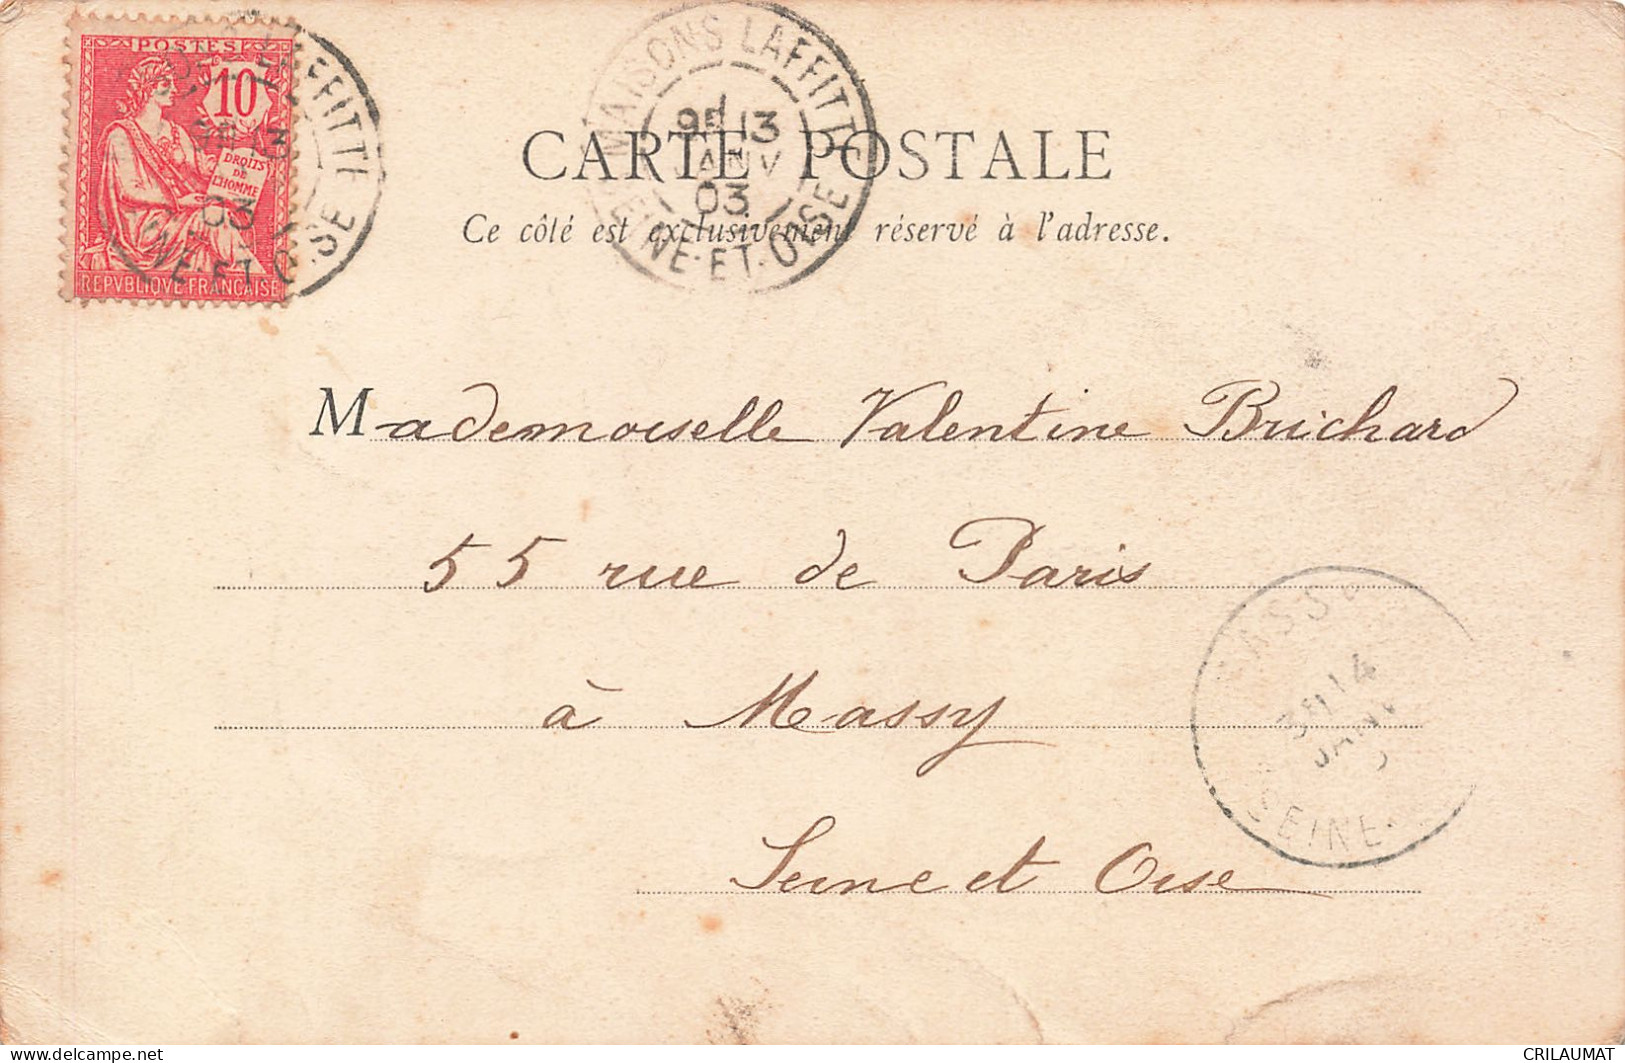 POSTES
10
DROITS
DE
L'HOMME
REPVBLIQVE·FRANÇAISE
MAISONS LAFFITTE
9E 13
JANV
03
SEINE-ET-OISE
CARTE POSTALE
Ce côté est exclusivement réservé à l'adresse.
Mademoiselle Valentine Brichard
55 rue de Paris
à Massy
Seine et Oise
MASSY
14
JANV
SEINE-
delcampe.net
CRILAUMAT